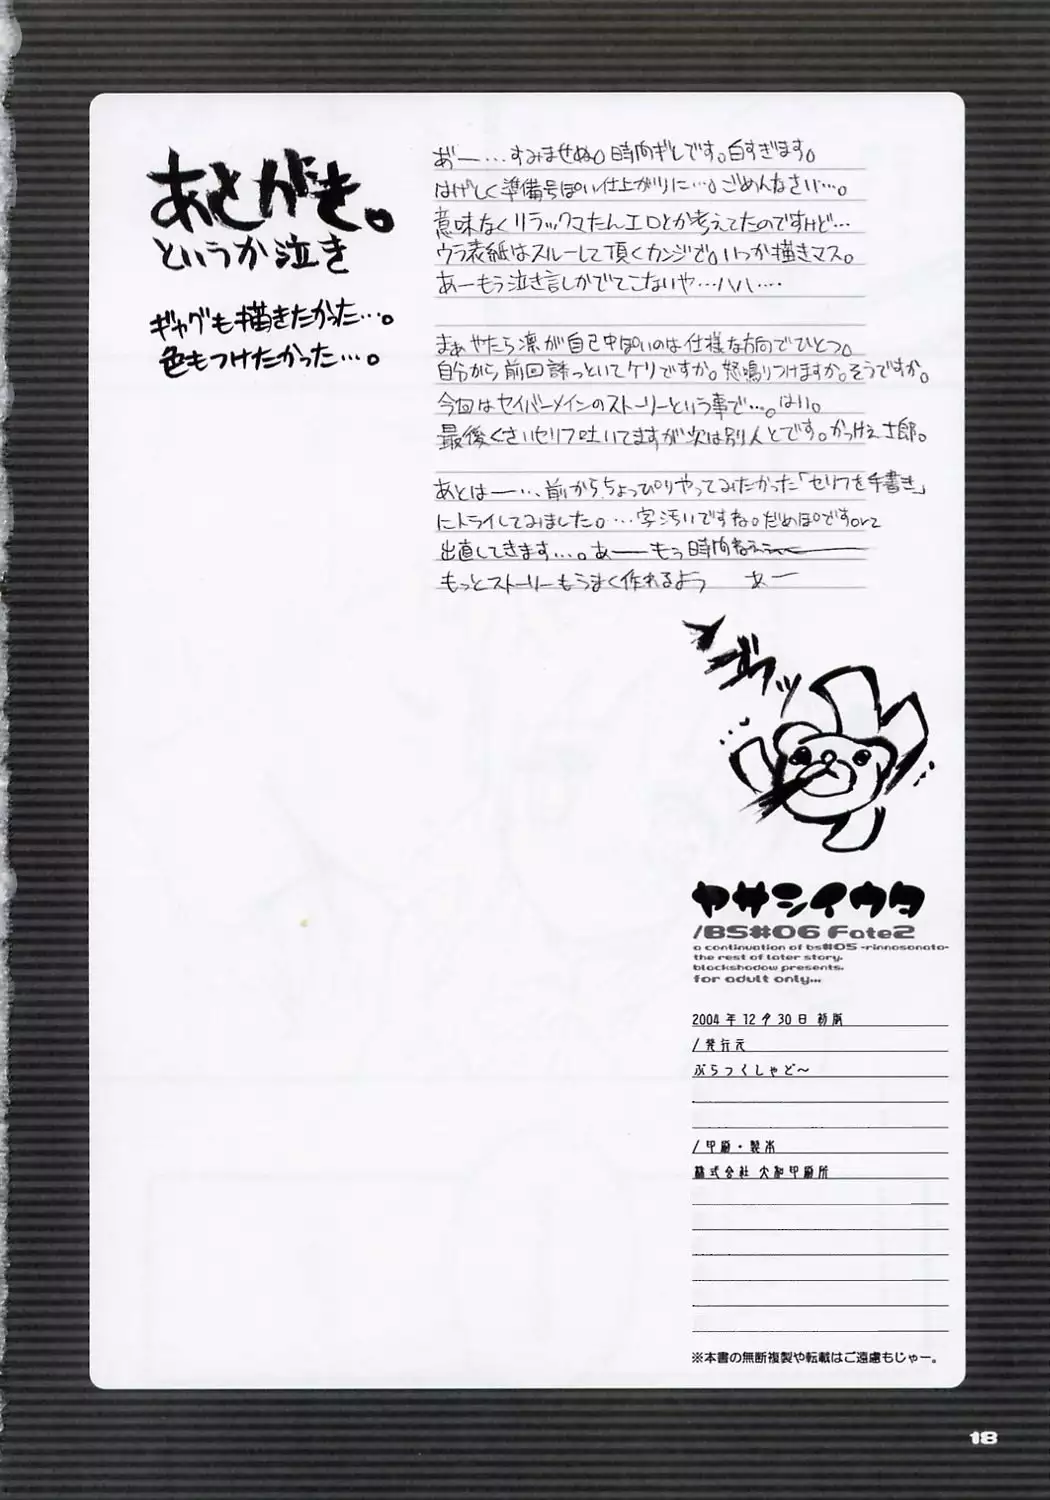 あとがき。
というか泣き
ギャグも描きたかった…。
色もつけたかった…。
あ゛ー…すみませぬ。時間ギレです。白すぎます。
はげしく準備号ぽい仕上がりに…。ごめんなさい…。
意味なくリラックマたんエロとか考えてたのですけど…
ウラ表紙はスルーして頂くカンジで。いつか描きマス。
あーもう泣き言しかでてこないや…ハハ….
まぁやたら凛が自己中ぽいのは仕様な方向でひとつ。
自分から前回誘っといてケリですか。怒鳴りつけますか。そうですか。
今回はセイバーメインのストーリーという事で…。はい。
最後くさいセリフ吐いてますが次は別人とです。かっけぇ士郎。
あとはー…、前からちょっぴりやってみたかった「セリフを手書き」
にトライしてみました。…字汚いですね。だめぽですorz
出直してきます…。あーーもっ時間ねぇぇー
もっとストーリーもうまく作れるよう あー
ヤサシイウタ
/BS#06 Fate2
a continuation of bs#05 -rinnosonata-
the rest of later story.
blackshadow presents.
for adult only...
2004年12月30日 初版
/発行元
ぶらっくしゃど〜
/印刷・製本
株式会社 大和印刷所
※本書の無断複製や転載はご遠慮もじゃー。
18